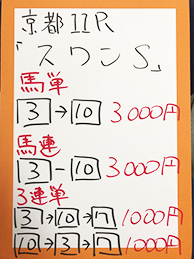 京都11R
「スワンS」
馬単
3→10 3000円
馬連
3-10 3000円
3連単
3→10→7 1000円
10→3→7 1000円